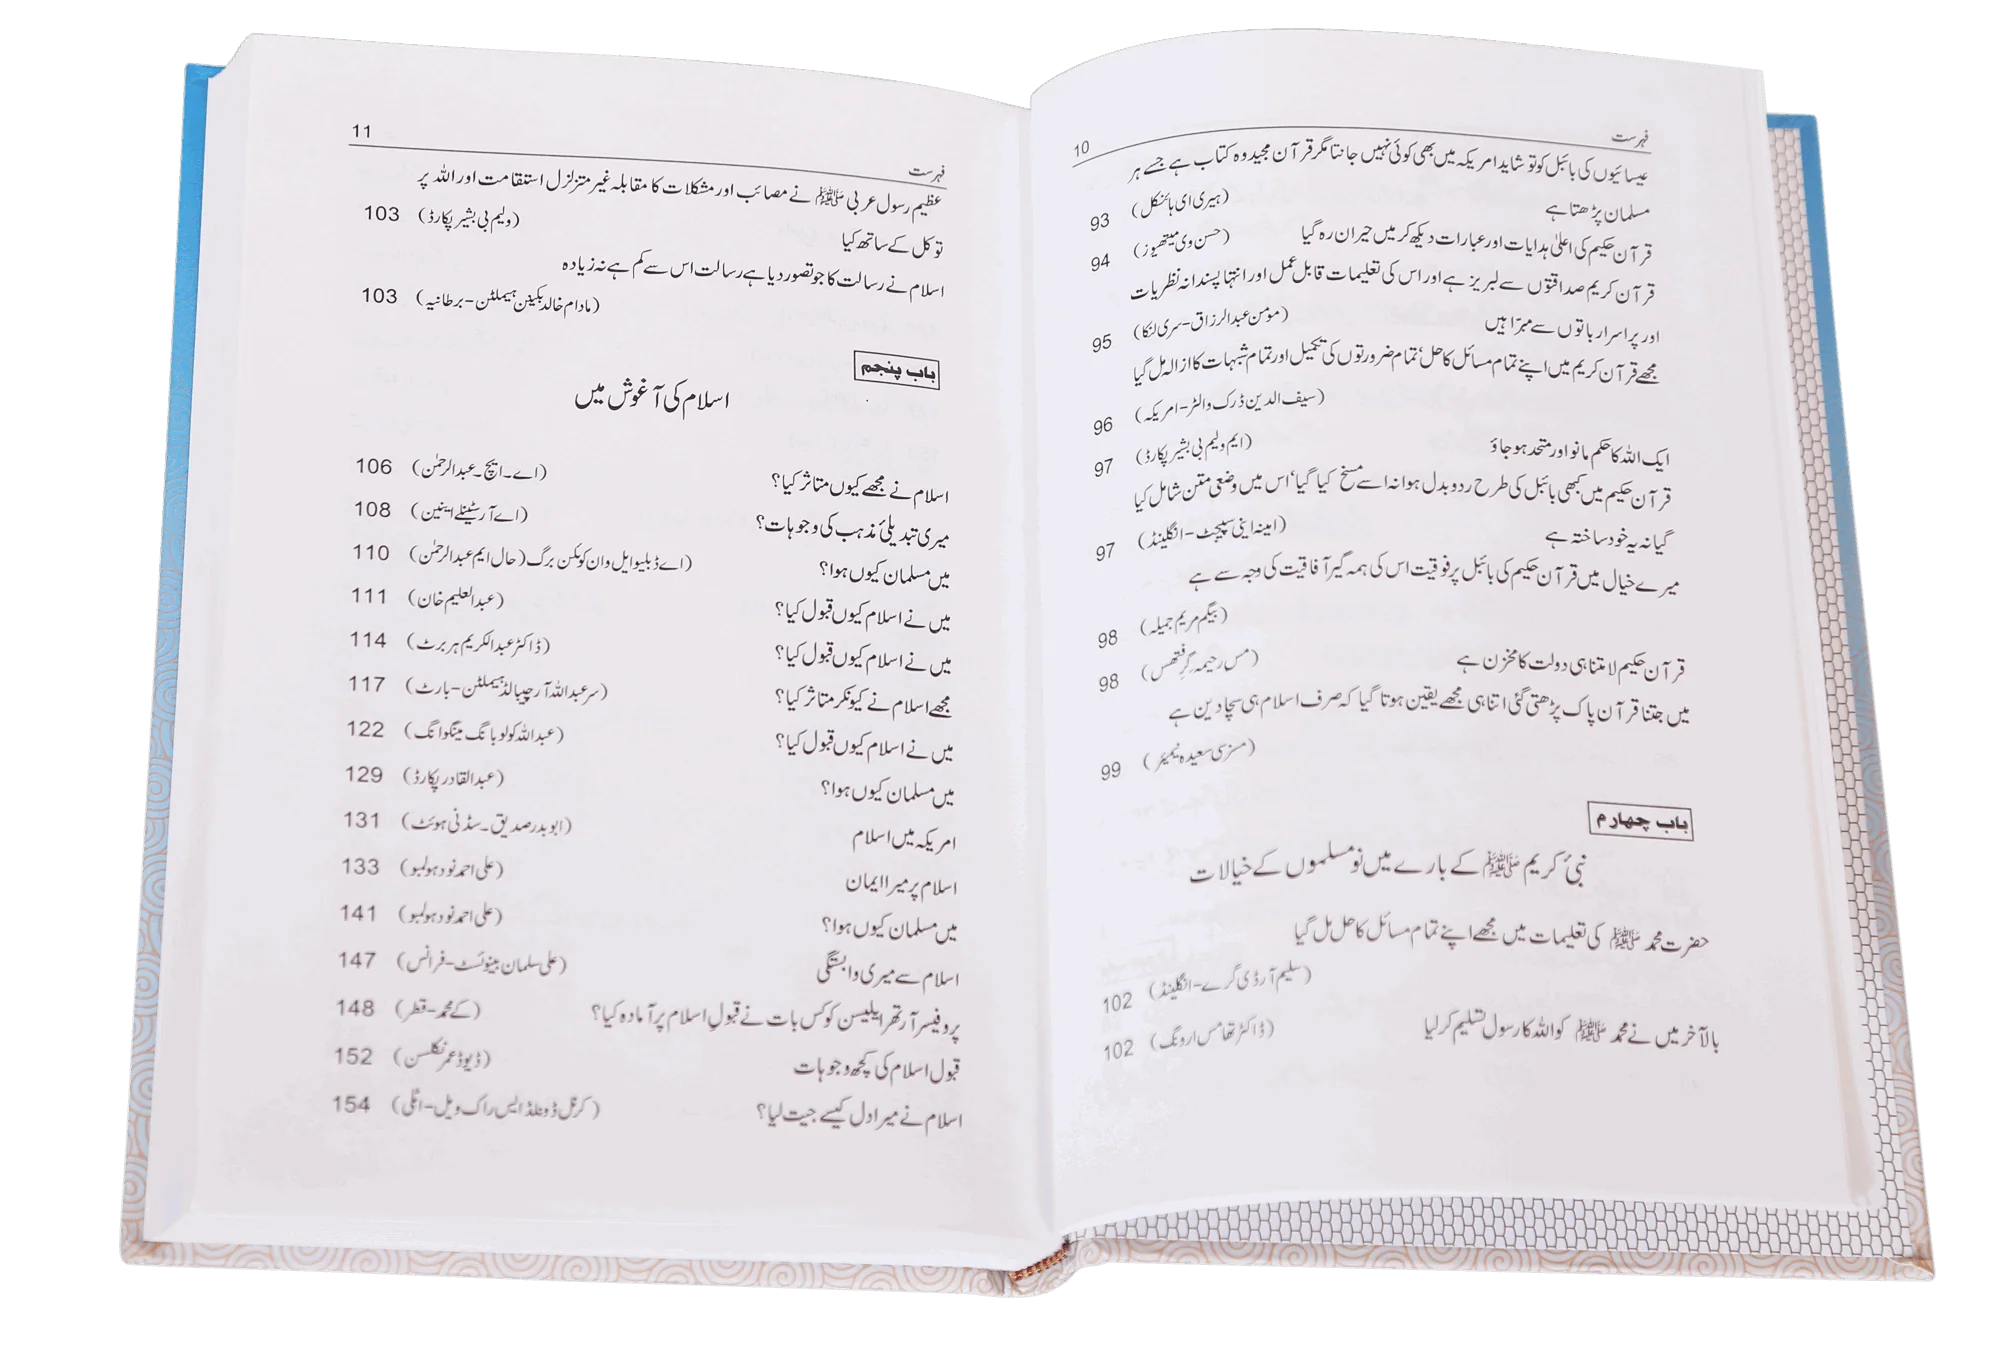 فہرست 10
عیسائیوں کی بائبل کو تو شاید امریکہ میں بھی کوئی نہیں جانتا مگر قرآن مجید وہ کتاب ہے جسے ہر
مسلمان پڑھتا ہے (ہیری ای ہائنکل) 93
قرآن حکیم کی اعلیٰ ہدایات اور عبارات دیکھ کر میں حیران رہ گیا (حسن وی میتھیوز) 94
قرآن کریم صداقتوں سے لبریز ہے اور اس کی تعلیمات قابل عمل اور انتہا پسندانہ نظریات
اور پراسرار باتوں سے مبرّا ہیں (مؤمن عبدالرزاق-سری لنکا) 95
مجھے قرآن کریم میں اپنے تمام مسائل کا حل‘ تمام ضرورتوں کی تکمیل اور تمام شبہات کا ازالہ مل گیا
(سیف الدین ڈرک والٹر-امریکہ) 96
ایک اللہ کا حکم مانو اور متحد ہو جاؤ (ایم ولیم بی بشیر پکارڈ) 97
قرآن حکیم میں کبھی بائبل کی طرح ردوبدل ہوا نہ اسے مسخ کیا گیا‘ اس میں وضعی متن شامل کیا
گیا نہ یہ خود ساختہ ہے (امینہ اینی سپیجٹ-انگلینڈ) 97
میرے خیال میں قرآن حکیم کی بائبل پر فوقیت اس کی ہمہ گیر آفاقیت کی وجہ سے ہے
(بیگم مریم جمیلہ) 98
قرآن حکیم لامتناہی دولت کا مخزن ہے (مس رحیمہ گرفتھس) 98
میں جتنا قرآن پاک پڑھتی گئی اتنا ہی مجھے یقین ہوتا گیا کہ صرف اسلام ہی سچا دین ہے
(مسز سی سعیدہ نیمیئر) 99
باب چہارم
نبیٔ کریم ﷺ کے بارے میں نو مسلموں کے خیالات
حضرت محمد ﷺ کی تعلیمات میں مجھے اپنے تمام مسائل کا حل مل گیا
(سلیم آر ڈی گرے-انگلینڈ) 102
بالآخر میں نے محمد ﷺ کو اللہ کا رسول تسلیم کر لیا (ڈاکٹر تھامس ارونگ) 102
فہرست 11
عظیم رسول عربی ﷺ نے مصائب اور مشکلات کا مقابلہ غیر متزلزل استقامت اور اللہ پر
توکل کے ساتھ کیا (ولیم بی بشیر پکارڈ) 103
اسلام نے رسالت کا جو تصور دیا ہے رسالت اس سے کم ہے نہ زیادہ
(مادام خالد بکینن ہیملٹن-برطانیہ) 103
باب پنجم
اسلام کی آغوش میں
اسلام نے مجھے کیوں متاثر کیا؟ (اے۔ایچ۔عبدالرحمٰن) 106
میری تبدیلیٔ مذہب کی وجوہات؟ (اے آر سٹینلے اینین) 108
میں مسلمان کیوں ہوا؟ (اے ڈبلیو ایل وان کوکن برگ (حال ایم عبدالرحمٰن) 110
میں نے اسلام کیوں قبول کیا؟ (عبدالعلیم خان) 111
میں نے اسلام کیوں قبول کیا؟ (ڈاکٹر عبدالکریم ہربرٹ) 114
مجھے اسلام نے کیونکر متاثر کیا؟ (سر عبداللہ آرچیبالڈ ہیملٹن-بارٹ) 117
میں نے اسلام کیوں قبول کیا؟ (عبداللہ کولو بانگ مینگوانگ) 122
میں مسلمان کیوں ہوا؟ (عبدالقادر پکارڈ) 129
امریکہ میں اسلام (ابوبدر صدیق۔سڈنی ہوئٹ) 131
اسلام پر میرا ایمان (علی احمد نود ہولمبو) 133
میں مسلمان کیوں ہوا؟ (علی احمد نود ہولمبو) 141
اسلام سے میری وابستگی (علی سلمان بینوئسٹ-فرانس) 147
پروفیسر آرتھر ایلیسن کو کس بات نے قبولِ اسلام پر آمادہ کیا؟ (کے محمد-قطر) 148
قبول اسلام کی کچھ وجوہات (ڈیوڈ عمر نکلسن) 152
اسلام نے میرا دل کیسے جیت لیا؟ (کرنل ڈونلڈ ایس راک ویل-اٹلی) 154